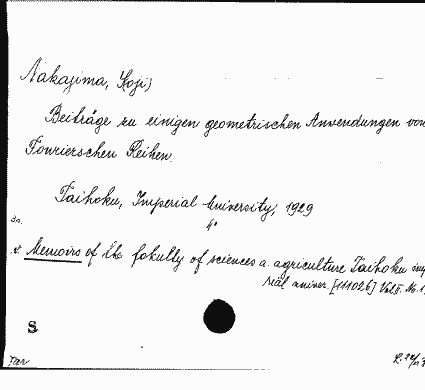 Nakajima, Koji)
Beiträge zu einigen geometrischen Anwendungen von
Fourierschen Reihen.
Taihoku, Imperial University, 1929
4°
In.
Memoirs of the fakulty of sciences a. agriculture Taihoku imp
rial univer. [111026] Vol II. No. 1
S.